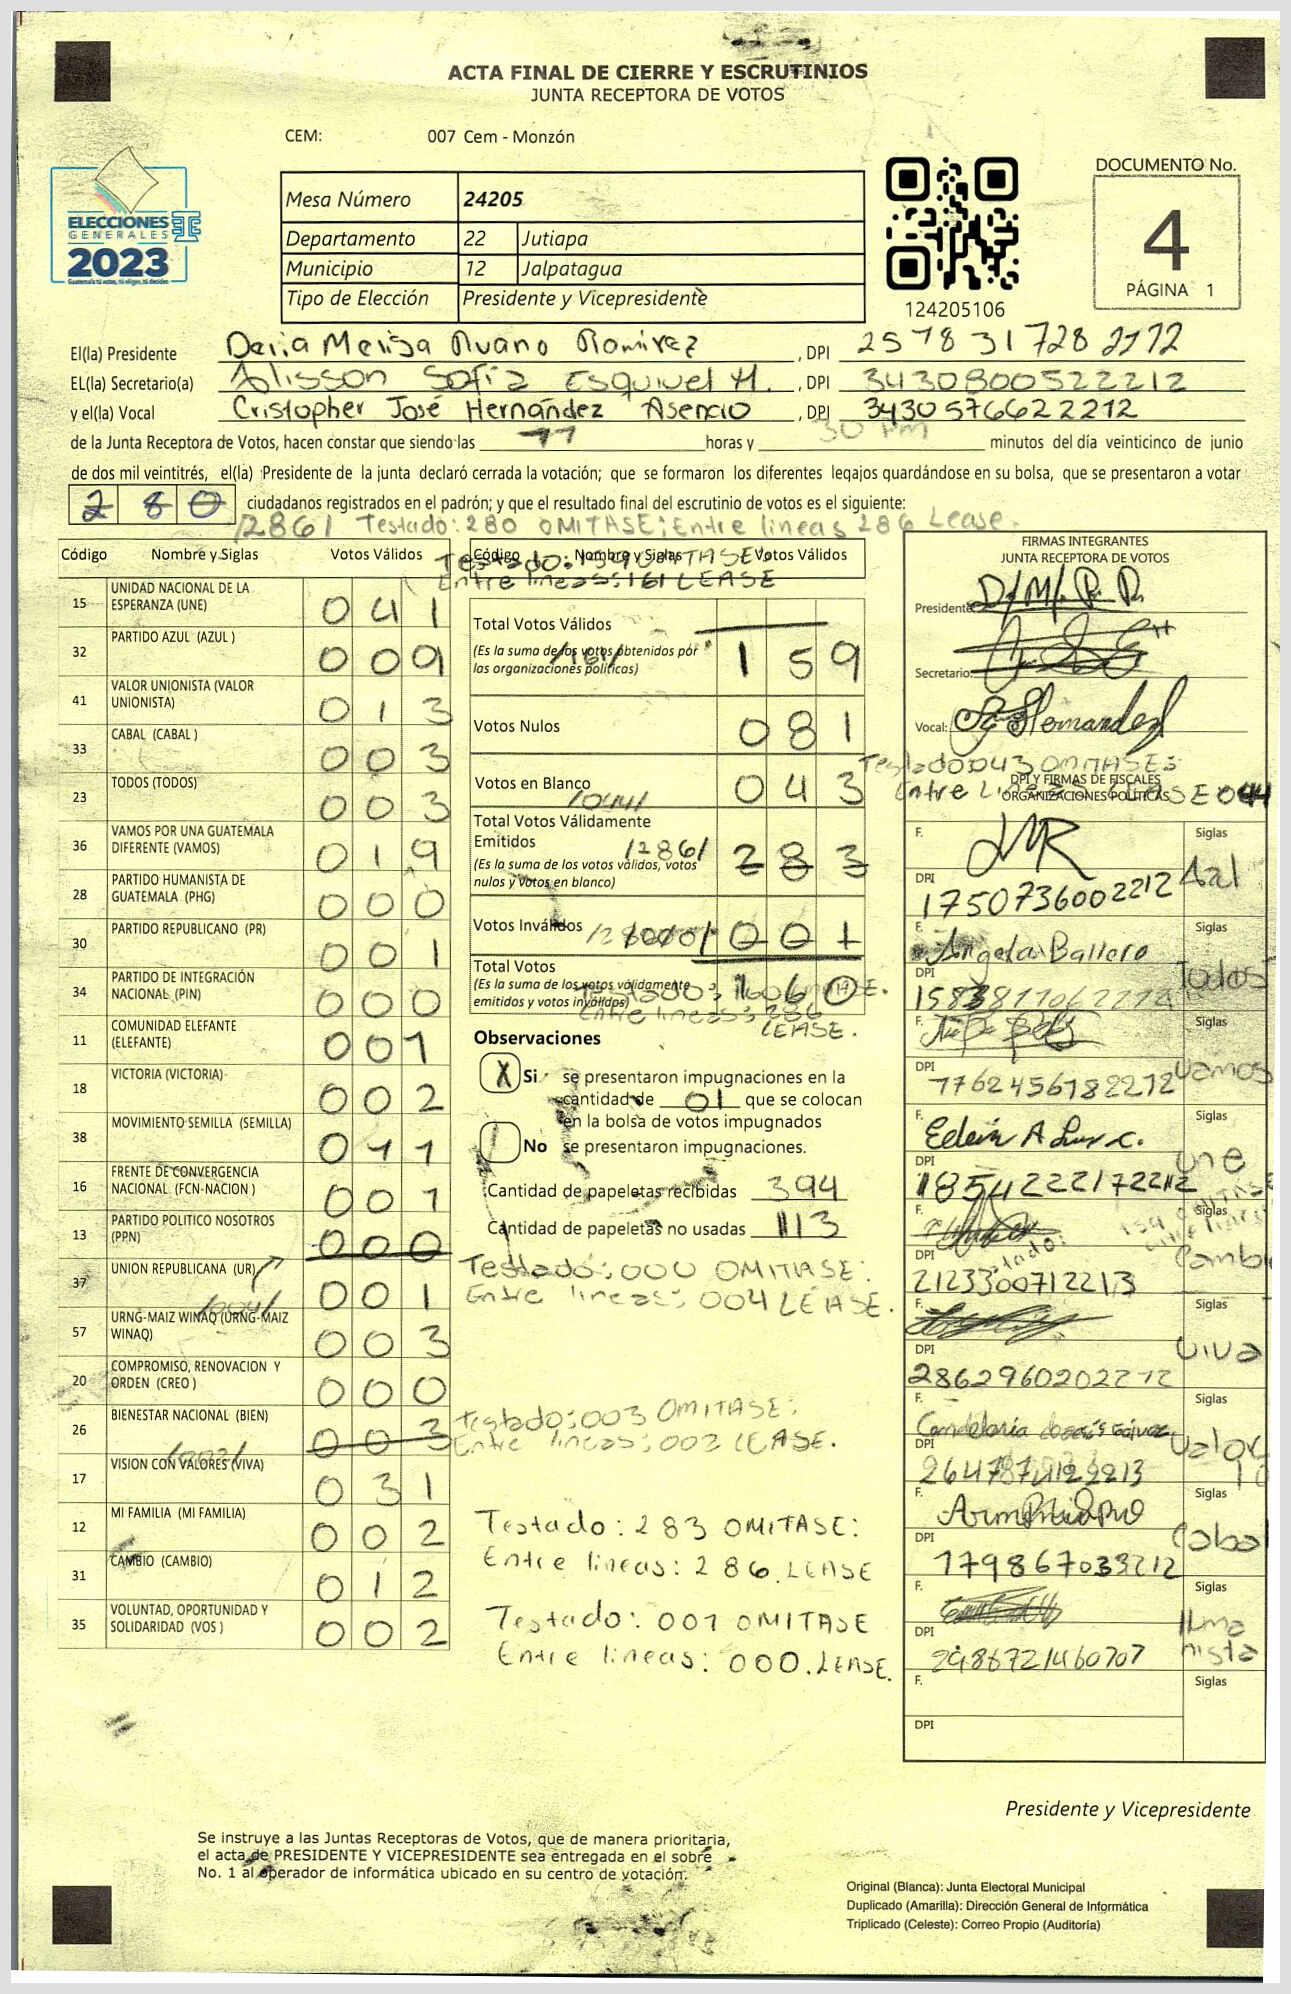 ACTA FINAL DE CIERRE Y ESCRUTINIOS
JUNTA RECEPTORA DE VOTOS
CEM: 007 Cem - Monzón
ELECCIONES
GENERALES
2023
Guatemala tú votas, tú eliges, tú decides
TSE
Mesa Número 24205
Departamento 22 Jutiapa
Municipio 12 Jalpatagua
Tipo de Elección Presidente y Vicepresidente
124205106
DOCUMENTO No.
4
PÁGINA 1
El(la) Presidente Delia Melisa Ruano Ramirez , DPI 2578317282172
EL(la) Secretario(a) Alisson Sofia Esquivel M. , DPI 3430800522212
y el(la) Vocal Cristopher José Hernández Asencio , DPI 3430576622212
de la Junta Receptora de Votos, hacen constar que siendo las horas y 30 PM minutos del día veinticinco de junio
de dos mil veintitrés, el(la) Presidente de la junta declaró cerrada la votación; que se formaron los diferentes legajos guardándose en su bolsa, que se presentaron a votar
280 ciudadanos registrados en el padrón; y que el resultado final del escrutinio de votos es el siguiente:
/286/ Testado: 280 OMITASE; Entre lineas 286 Lease.
Código Nombre y Siglas Votos Válidos
15 UNIDAD NACIONAL DE LA ESPERANZA (UNE) 041
32 PARTIDO AZUL (AZUL ) 009
41 VALOR UNIONISTA (VALOR UNIONISTA) 013
33 CABAL (CABAL ) 003
23 TODOS (TODOS) 003
36 VAMOS POR UNA GUATEMALA DIFERENTE (VAMOS) 019
28 PARTIDO HUMANISTA DE GUATEMALA (PHG) 000
30 PARTIDO REPUBLICANO (PR) 001
34 PARTIDO DE INTEGRACIÓN NACIONAL (PIN) 000
11 COMUNIDAD ELEFANTE (ELEFANTE) 001
18 VICTORIA (VICTORIA) 002
38 MOVIMIENTO SEMILLA (SEMILLA) 011
16 FRENTE DE CONVERGENCIA NACIONAL (FCN-NACION ) 001
13 PARTIDO POLITICO NOSOTROS (PPN) 000
37 UNION REPUBLICANA (UR) 001
/004/
57 URNG-MAIZ WINAQ (URNG-MAIZ WINAQ) 003
20 COMPROMISO, RENOVACION Y ORDEN (CREO ) 000
26 BIENESTAR NACIONAL (BIEN) 003
/002/
17 VISION CON VALORES (VIVA) 031
12 MI FAMILIA (MI FAMILIA) 002
31 CAMBIO (CAMBIO) 012
35 VOLUNTAD, OPORTUNIDAD Y SOLIDARIDAD (VOS) 002
Código Nombre y Siglas Votos Válidos
Testado: 159 OMITASE
Entre lineas: 161 LEASE
Total Votos Válidos
(Es la suma de los votos obtenidos por las organizaciones políticas) /161/ 159
Votos Nulos 081
Votos en Blanco /044/ 043
Total Votos Válidamente Emitidos
(Es la suma de los votos válidos, votos nulos y votos en blanco) /286/ 283
Votos Inválidos /000/ 001
Total Votos
(Es la suma de los votos válidamente emitidos y votos inválidos)
Entre lineas: 286
LEASE.
Observaciones
X Si se presentaron impugnaciones en la
cantidad de 01 que se colocan
en la bolsa de votos impugnados
No se presentaron impugnaciones.
Cantidad de papeletas recibidas 394
Cantidad de papeletas no usadas 113
Testado: 000 OMITASE:
Entre lineas: 004 LEASE.
Testado: 003 OMITASE:
Entre lineas: 002 LEASE.
Testado: 283 OMITASE:
Entre lineas: 286 LEASE
Testado: 001 OMITASE
Entre lineas: 000. LEASE.
FIRMAS INTEGRANTES
JUNTA RECEPTORA DE VOTOS
Presidente: D/M/. R. R.
Secretario:
Vocal: Hernandez
Testado: 043 OMITASE:
Entre Lineas LEASE 044
DPI Y FIRMAS DE FISCALES
ORGANIZACIONES POLÍTICAS
F. Siglas
DPI 1750736002212 Azul
F. Angela Ballero
DPI Todos
F. Siglas
DPI 1762456182212 Vamos
F. Edein A Siglas
DPI 1854222172212 Une
F. Siglas
DPI 2123300712213 Cambi
F. Siglas
DPI 2862960202212 Viva
F. Candelaria Siglas
DPI Valor
F. Siglas
DPI 179867033212 Cabal
F. Siglas
DPI 2986721460707
F. Siglas
DPI
Presidente y Vicepresidente
Se instruye a las Juntas Receptoras de Votos, que de manera prioritaria,
el acta de PRESIDENTE Y VICEPRESIDENTE sea entregada en el sobre
No. 1 al operador de informática ubicado en su centro de votación.
Original (Blanca): Junta Electoral Municipal
Duplicado (Amarilla): Dirección General de Informática
Triplicado (Celeste): Correo Propio (Auditoría)